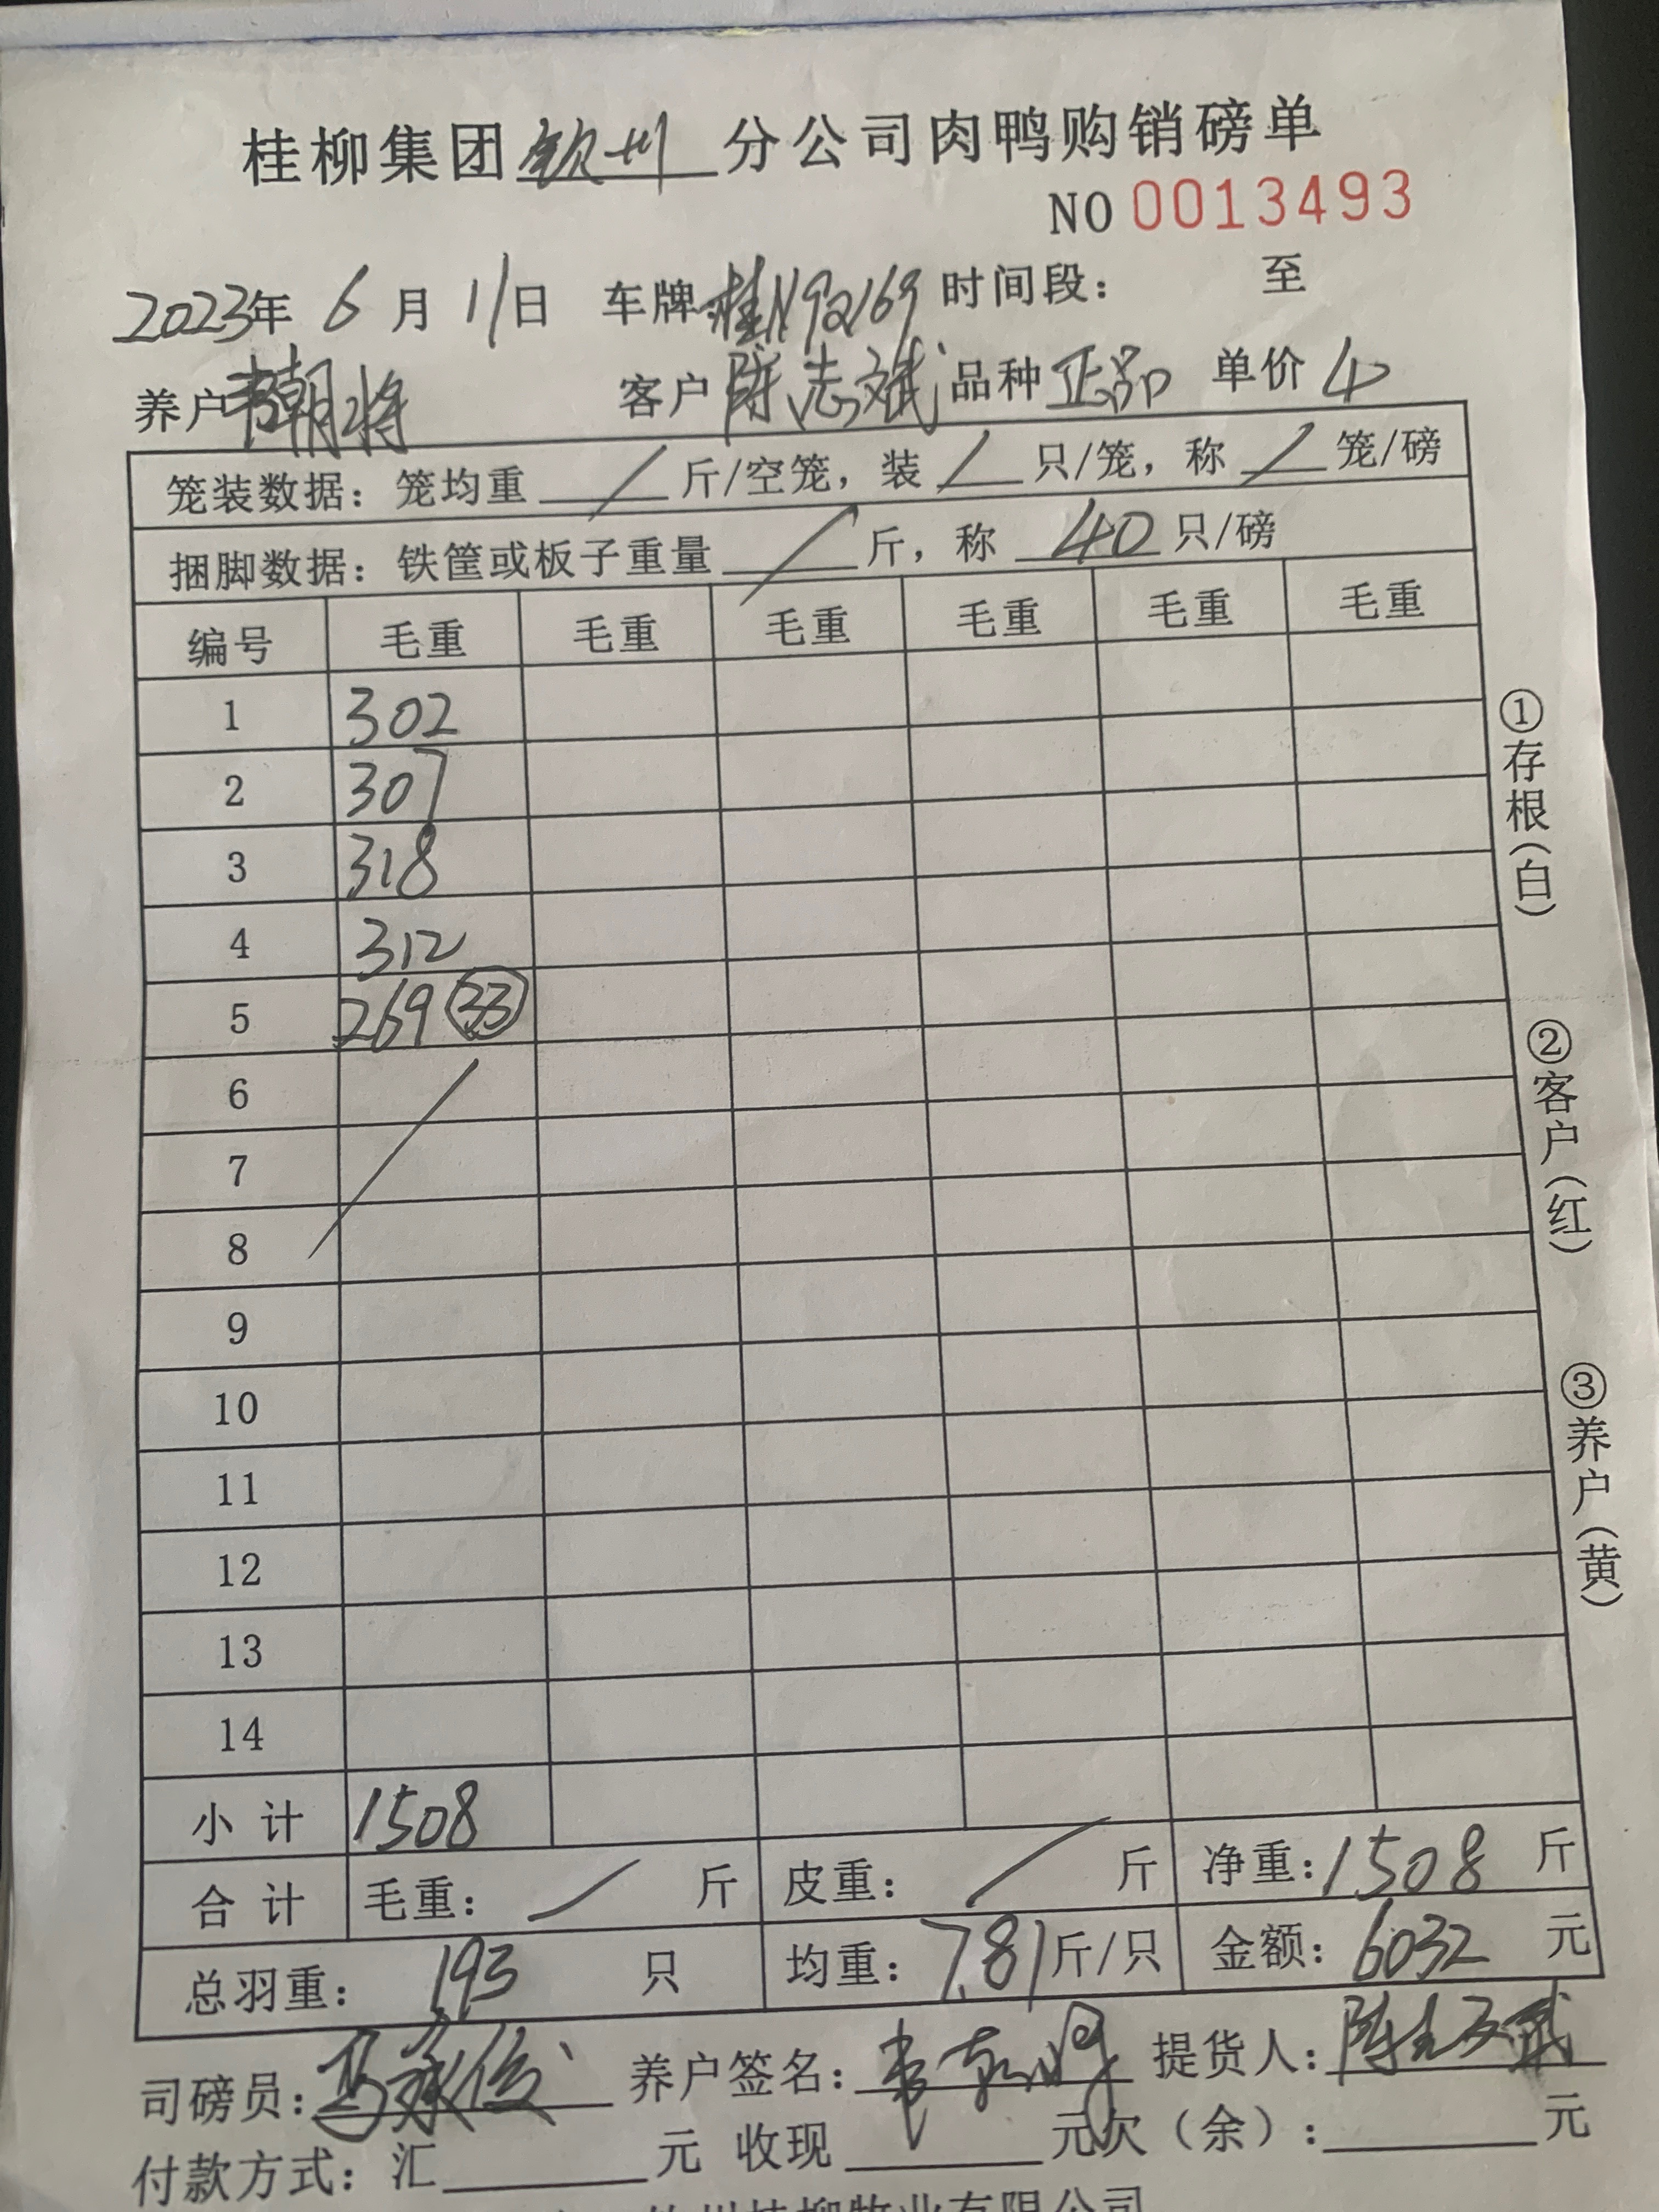 桂柳集团钦州分公司肉鸭购销磅单
NO 0013493
2023年 6月 11日 车牌:桂N92169 时间段： 至
养户韦朝将 客户陈志斌 品种正品 单价4
笼装数据：笼均重 / 斤/空笼，装 / 只/笼，称 / 笼/磅
捆脚数据：铁筐或板子重量 / 斤，称 40 只/磅
编号 毛重 毛重 毛重 毛重 毛重 毛重
1 302
2 307
3 318
4 312
5 269 33
6
7
8
9
10
11
12
13
14
小计 1508
合计 毛重： / 斤 皮重： / 斤 净重：1508 斤
总羽重： 193 只 均重：7.81斤/只 金额：6032 元
司磅员：马承俊 养户签名： 提货人：陈志斌
付款方式：汇 元 收现 元欠（余）： 元
钦州桂柳牧业有限公司
①存根（白）
②客户（红）
③养户（黄）